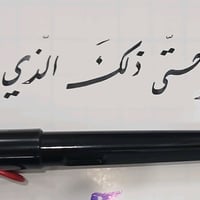 وحتّى ذلكَ الّذي